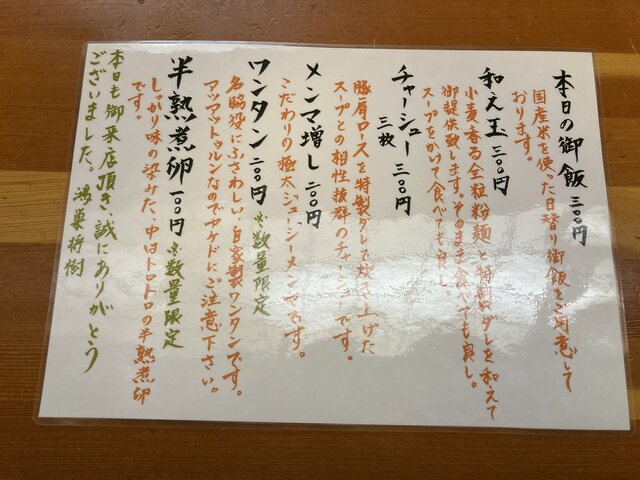 本日の御飯 三〇〇円
国産米を使った日替り御飯をご用意して
おります。
和え玉 三〇〇円
小麦香る全粒粉麺と特製ダレを和えて
御提供致します。そのまま食べても良し。
スープをかけて食べても良し。
チャーシュー 三〇〇円
三枚
豚肩ロースを特製ダレで炊き上げた
スープとの相性抜群のチャーシューです。
メンマ増し 二〇〇円
こだわりの極太ジューシーメンマです。
ワンタン 二〇〇円 ※数量限定
名脇役にふさわしい、自家製ワンタンです。
アツアツトゥルンなのでヤケドにご注意下さい。
半熟煮卵 一〇〇円 ※数量限定
しっかり味の染みた、中はトロトロの半熟煮卵
です。
本日も御来店頂き、誠にありがとう
ございました。 鴻巣将樹